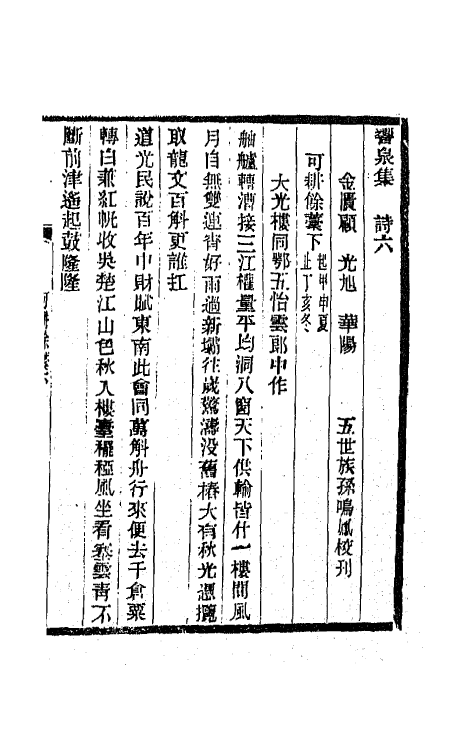 響泉集　詩六
金匱顧　光旭　華陽　五世族孫鳴鳳校刊
可耕餘藁下　起甲申夏
止丁亥冬
大光樓同鄂五怡雲郎中作
舳艫轉漕接三江權量平均洞八窗天下供輸皆什一樓間風
月自無雙連宵好雨過新壩往歲驚濤没舊樁大有秋光憑攬
取龍文百斛更誰扛
道光民說百年中財賦東南此會同萬斛舟行來便去千倉粟
轉白兼紅帆收吳楚江山色秋入樓臺䆉稏風坐看雲靑不
斷前津遙起鼓隆隆